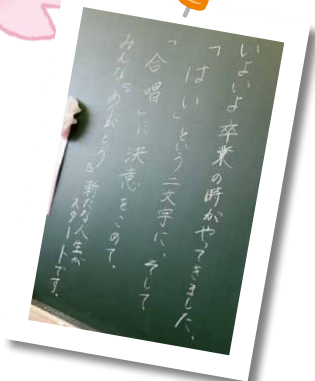 いよいよ卒業の時がやってきました。
「はい」という二文字に、そして
「合唱」に決意をこめて。
みんなありがとう
新たな人生が
スタートです。